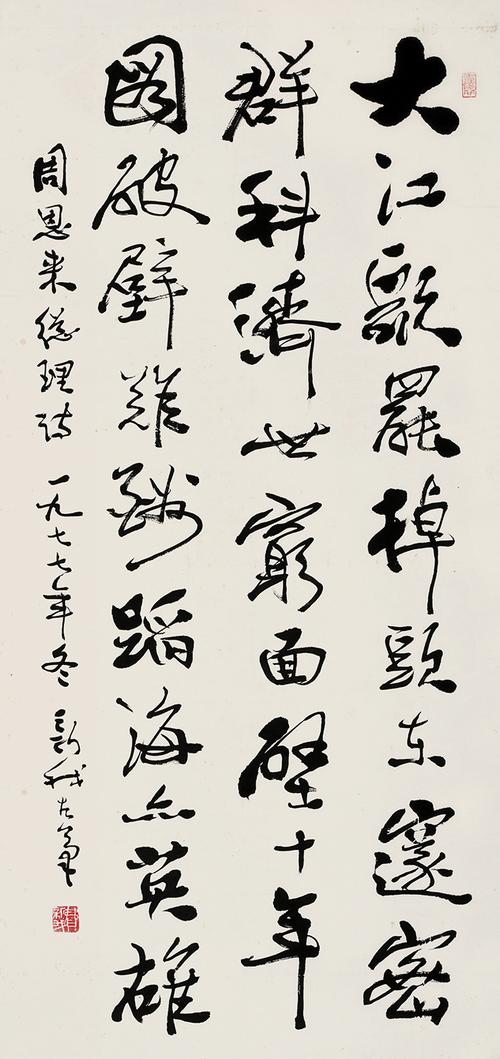 大江歌罷掉頭東邃密
群科濟世窮面壁十年
圖破壁難酬蹈海亦英雄
周恩来總理詩 一九七七年冬 新我左筆